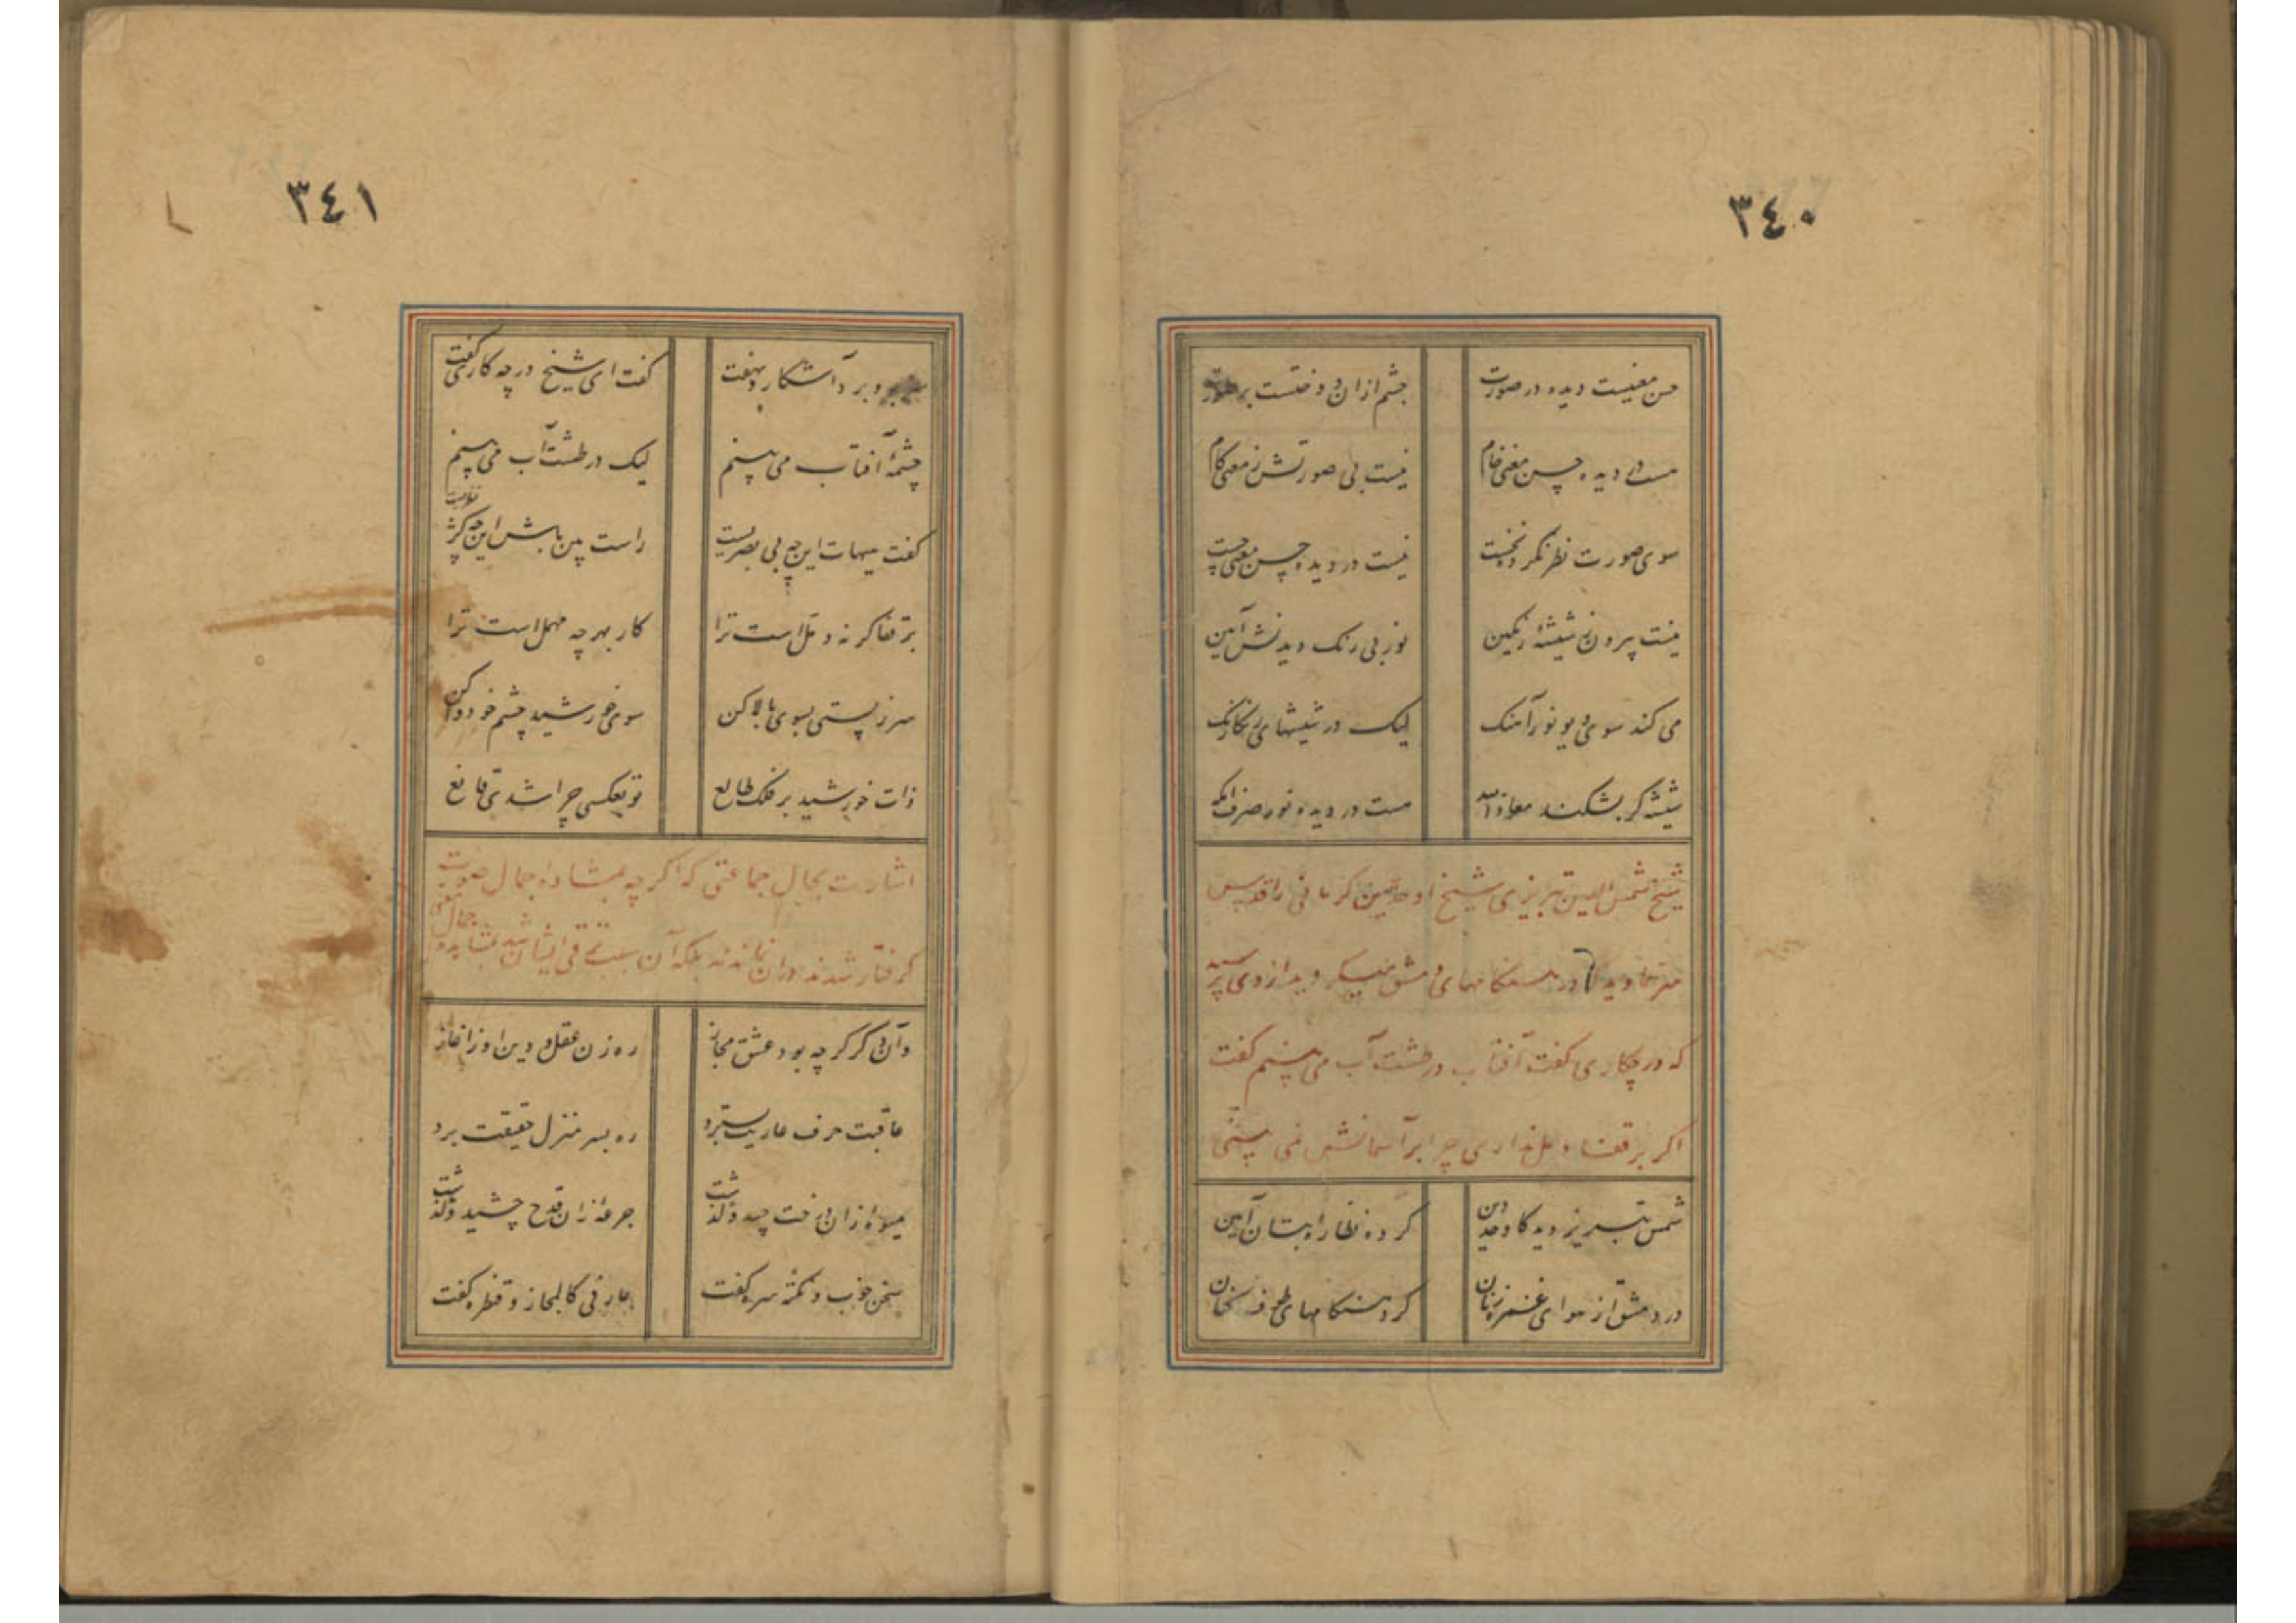 ٣٤٠
حسن معنیست دیده در صورت چشم ازان دوختست بر صورت
هست در دیده حسن معنی خام نیست بی صورتش ز معنی کام
سوی صورت نظر نکرد نخست نیست در دیده حسن معنی چست
نیست بیرون ز شیشه رنگین نور بی رنگ دیدنش آیین
می کند سوی دیو نور آهنک لیک در شیشهای رنکارنک
شیشه کر بشکند معاذ الله هست در دیده نور صرف
شیخ شمس الدین تبریزی شیخ اوحدالدین کرمانی را قدس
سرهما دید که در هنکامهای دمشق میکردید از وی پرسید
که در چکاری کفت آفتاب در طشت آب می بینم کفت
اکر بر قفا دمل نداری چرا بر آسمانش نمی بینی
شمس تبریز دید کاوحد دین کرده نظاره بتان آیین
در دمشق از هوای غمزه زنان کرد هنکامهای طوف کنان
٣٤١
برو برد آشکار و نهفت کفت ای شیخ در چه کاری کفت
چشمۀ آفتاب می بینم لیک در طشت آب می بینم
کفت هیهات این چه بی بصریست راست بین باش این چه کژ نظریست
بر قفا کر نه دمل است ترا کار بهر چه مهمل است ترا
سر ز پستی بسوی بالا کن سوی خورشید چشم خود وا کن
ذات خورشید بر فلک طالع تو بعکسی چرا شدی قانع
اشارت بحال جماعتی که اکر چه بمشاهده جمال صورت
کرفتار شدند دران نماندند بلکه آن سبب ترقی ایشان شد بمشاهده جمال معنی
وآن دکر کرچه بود عشق مجاز ره زن عقل و دین او ز آغاز
عاقبت حرف عاریت بسترد ره بسر منزل حقیقت برد
میوۀ زان درخت چید و کذشت جرعۀ زان قدح چشید و کذشت
سخن خوب و نکتۀ سره کفت عارفی کالمجاز قنطره کفت